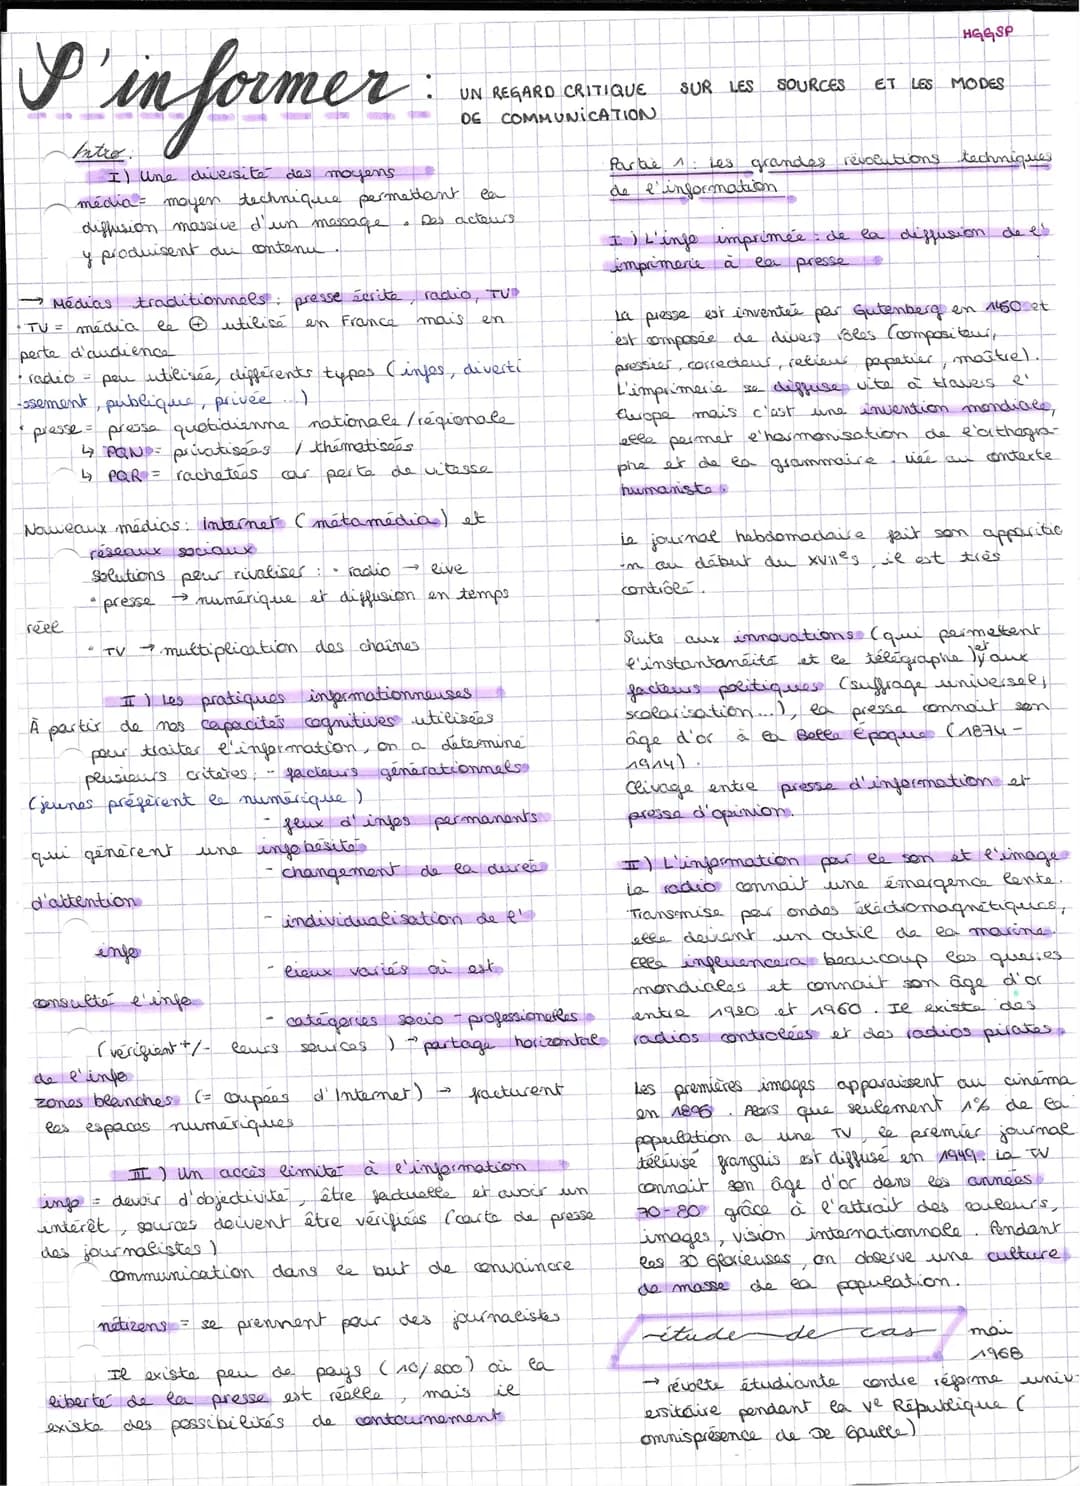 HGGSP
S'informer : UN REGARD CRITIQUE SUR LES SOURCES ET LES MODES
DE COMMUNICATION
Intro :
I) Une diversité des moyens
média = moyen technique permettant la
diffusion massive d'un message. Des acteurs
y produisent du contenu.
→ Médias traditionnels : presse écrite, radio, TV
· TV = média le ⊕ utilisé en France mais en
perte d'audience
· radio = peu utilisée, différents types (infos, diverti
-ssement, publique, privée ...)
· presse = presse quotidienne nationale / régionale
↳ PQN = privatisées / thématisées
↳ PQR = rachetées car perte de vitesse
Nouveaux médias : Internet (métamédia) et
réseaux sociaux
Solutions pour rivaliser : · radio → live
· presse → numérique et diffusion en temps
réel
· TV → multiplication des chaînes
II) Les pratiques informationneuses
À partir de nos capacités cognitives utilisées
pour traiter l'information, on a déterminé
plusieurs critères : - facteurs générationnels
(jeunes préfèrent le numérique)
- flux d'infos permanents
qui génèrent une infobésité
- changement de la durée
d'attention
- individualisation de l'
info
- lieux variés où est
consulté l'info
- catégories socio-professionelles
(vérifient +/- leurs sources) → partage horizontal
de l'info
zones blanches (= coupées d'Internet) → fracturent
les espaces numériques
III) Un accès limité à l'information
info = devoir d'objectivité, être factuelle et avoir un
intérêt, sources doivent être vérifiées (carte de presse
des journalistes)
communication dans le but de convaincre
nétizens = se prennent pour des journalistes
Il existe peu de pays (10/200) où la
liberté de la presse est réelle, mais il
existe des possibilités de contournement
Partie 1 : Les grandes révolutions techniques
de l'information
I) L'info imprimée : de la diffusion de l'
imprimerie à la presse
La presse est inventée par Gutenberg en 1450 et
est composée de divers rôles (compositeur,
pressier, correcteur, relieur, papetier, maître).
L'imprimerie se diffuse vite à travers l'
Europe mais c'est une invention mondiale,
elle permet l'harmonisation de l'orthogra-
phe et de la grammaire. liée au contexte
humaniste.
Le journal hebdomadaire fait son apparitio
-n au début du XVIIe s, il est très
contrôlé.
Suite aux innovations (qui permettent
l'instantanéité et le télégraphe) et aux
facteurs politiques (suffrage universel,
scolarisation...), la presse connait son
âge d'or à la Belle Époque (1874 -
1914).
Clivage entre presse d'information et
presse d'opinion.
II) L'information par le son et l'image
La radio connait une émergence lente.
Transmise par ondes électromagnétiques,
elle devient un outil de la marine.
Elle influencera beaucoup les guerres
mondiales et connait son âge d'or
entre 1920 et 1960. Il existe des
radios controlées et des radios pirates.
Les premières images apparaissent au cinéma
en 1895. Alors que seulement 1% de la
population a une TV, le premier journal
télévisé français est diffusé en 1949. La TV
connait son âge d'or dans les années
70-80 grâce à l'attrait des couleurs,
images, vision internationale. Pendant
les 30 Glorieuses, on observe une culture
de masse de la population.
étude de cas mai
1968
→ révolte étudiante contre réforme univ-
ersitaire pendant la Ve République (
omnisprésence de De Gaulle)